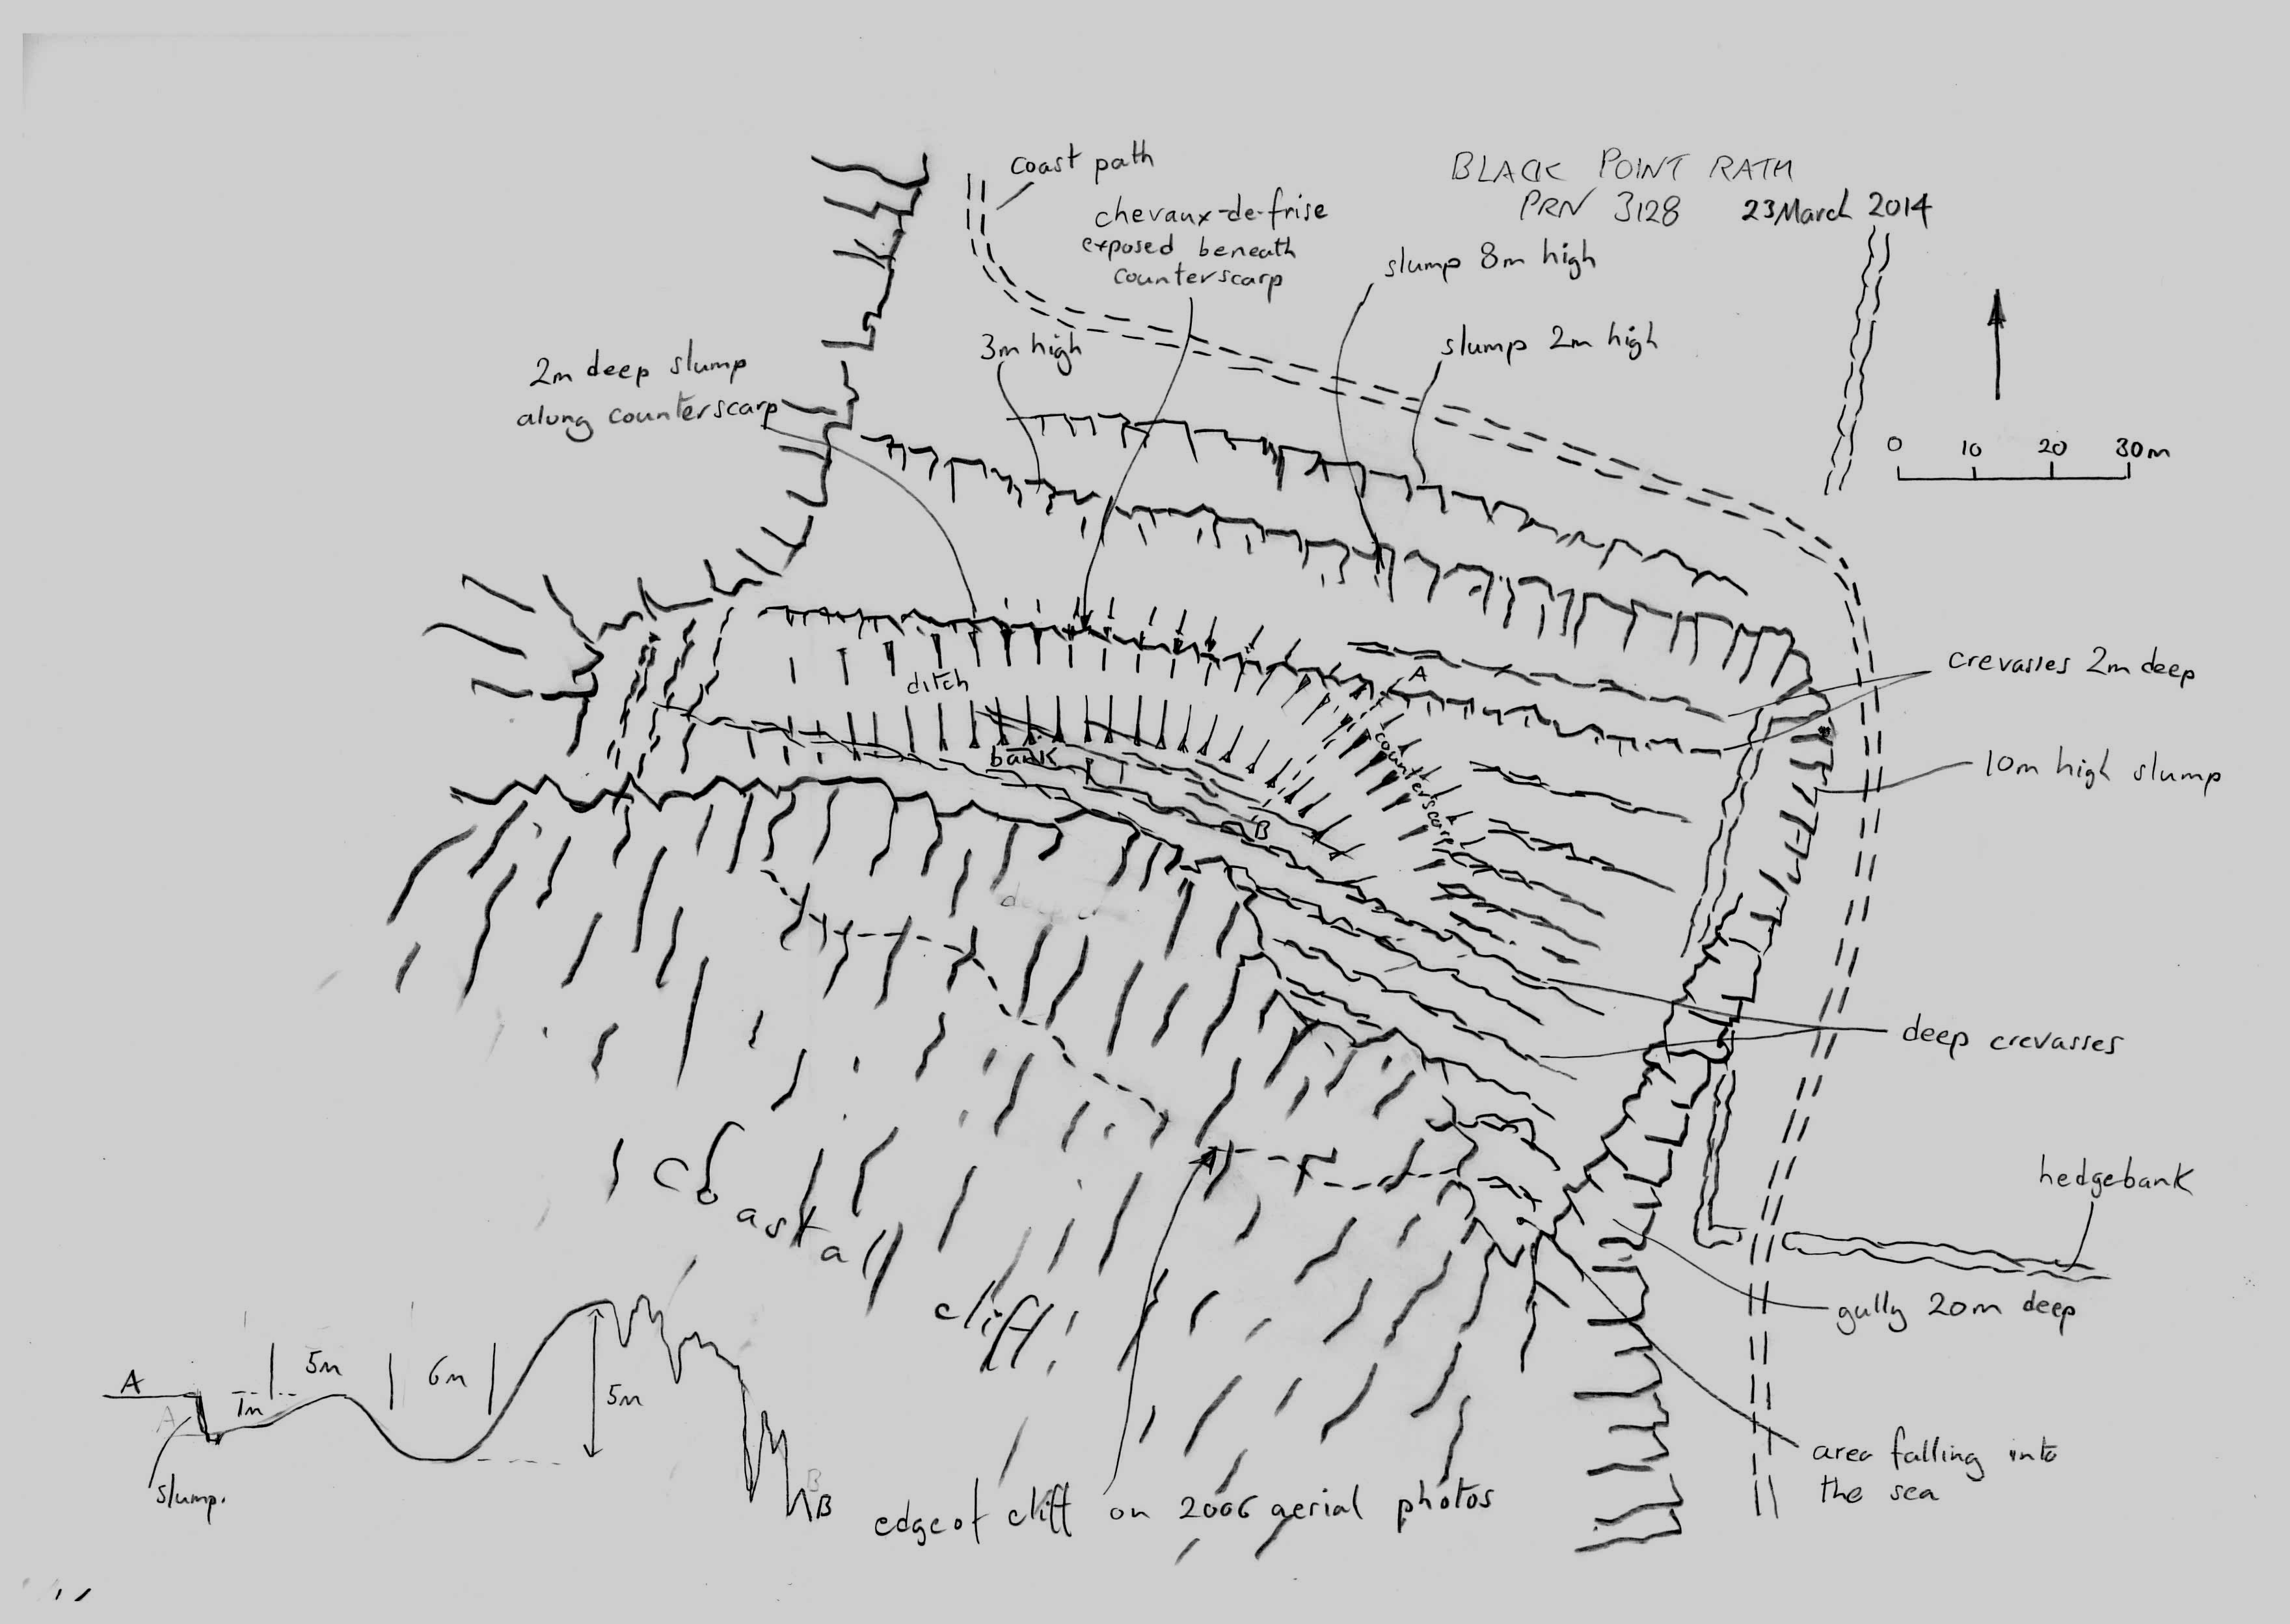 BLACK POINT RATH
PRN 3128 23 March 2014
coast path
chevaux-de-frise
exposed beneath
counterscarp
slump 8m high
slump 2m high
3m high
2m deep slump
along counterscarp
0 10 20 30m
A
crevasses 2m deep
ditch
bank
counterscarp
B
10m high slump
deep crevasses
hedgebank
gully 20m deep
area falling into
the sea
coastal
cliff
edge of cliff on 2006 aerial photos
A
A
1m
5m
6m
5m
slump.
B
B